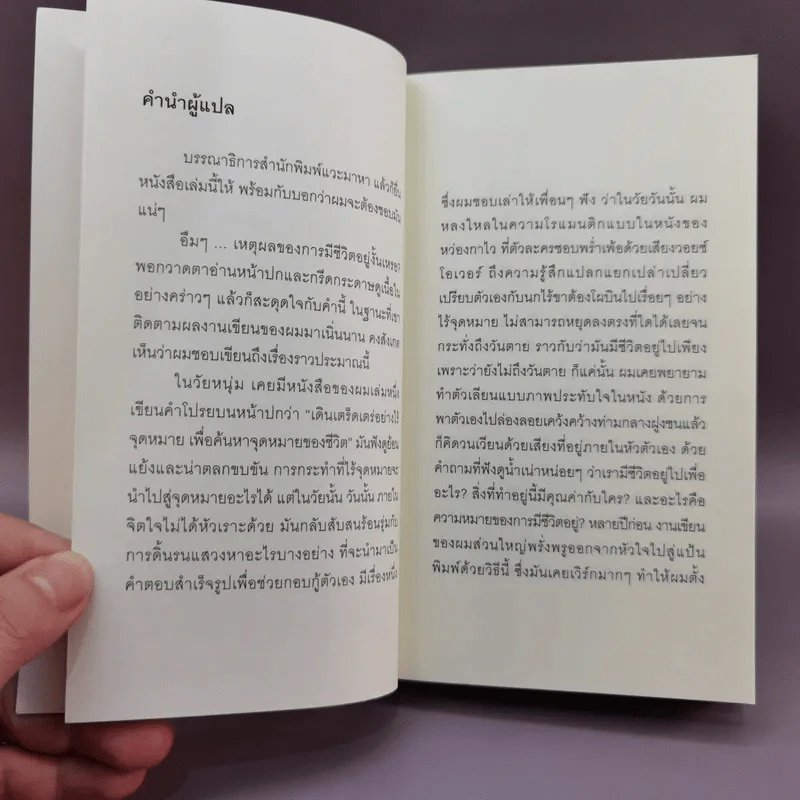 คำนำผู้แปล
บรรณาธิการสำนักพิมพ์แวะมาหา แล้วก็ยื่น
หนังสือเล่มนี้ให้ พร้อมกับบอกว่าผมจะต้องชอบมัน
แน่ๆ
อืมๆ ... เหตุผลของการมีชีวิตอยู่งั้นเหรอ?
พอกวาดตาอ่านหน้าปกและกรีดกระดาษดูเนื้อใน
อย่างคร่าวๆ แล้วก็สะดุดใจกับคำนี้ ในฐานะที่เขา
ติดตามผลงานเขียนของผมมาเนิ่นนาน คงสังเกต
เห็นว่าผมชอบเขียนถึงเรื่องราวประมาณนี้
ในวัยหนุ่ม เคยมีหนังสือของผมเล่มหนึ่ง
เขียนคำโปรยบนหน้าปกว่า "เดินเตร็ดเตร่อย่างไร้
จุดหมาย เพื่อค้นหาจุดหมายของชีวิต" มันฟังดูย้อน
แย้งและน่าตลกขบขัน การกระทำที่ไร้จุดหมายจะ
นำไปสู่จุดหมายอะไรได้ แต่ในวัยนั้น วันนั้น ภายใน
จิตใจไม่ได้หัวเราะด้วย มันกลับสับสนร้อนรุ่มกับ
การดิ้นรนแสวงหาอะไรบางอย่าง ที่จะนำมาเป็น
คำตอบสำเร็จรูปเพื่อช่วยกอบกู้ตัวเอง มีเรื่องหนึ่ง
ซึ่งผมชอบเล่าให้เพื่อนๆ ฟัง ว่าในวัยวันนั้น ผม
หลงใหลในความโรแมนติกแบบในหนังของ
หว่องกาไว ที่ตัวละครชอบพร่ำเพ้อด้วยเสียงวอยซ์
โอเวอร์ ถึงความรู้สึกแปลกแยกเปล่าเปลี่ยว
เปรียบตัวเองกับนกไร้ขาต้องโผบินไปเรื่อยๆ อย่าง
ไร้จุดหมาย ไม่สามารถหยุดลงตรงที่ใดได้เลยจน
กระทั่งถึงวันตาย ราวกับว่ามันมีชีวิตอยู่ไปเพียง
เพราะว่ายังไม่ถึงวันตาย ก็แค่นั้น ผมเคยพยายาม
ทำตัวเลียนแบบภาพประทับใจในหนัง ด้วยการ
พาตัวเองไปล่องลอยเคว้งคว้างท่ามกลางฝูงชนแล้ว
ก็คิดวนเวียนด้วยเสียงที่อยู่ภายในหัวตัวเอง ด้วย
คำถามที่ฟังดูน้ำเน่าหน่อยๆ ว่าเรามีชีวิตอยู่ไปเพื่อ
อะไร? สิ่งที่ทำอยู่นี้มีคุณค่ากับใคร? และอะไรคือ
ความหมายของการมีชีวิตอยู่? หลายปีก่อน งานเขียน
ของผมส่วนใหญ่พรั่งพรูออกจากหัวใจไปสู่แป้น
พิมพ์ด้วยวิธีนี้ ซึ่งมันเคยเวิร์กมากๆ ทำให้ผมตั้ง